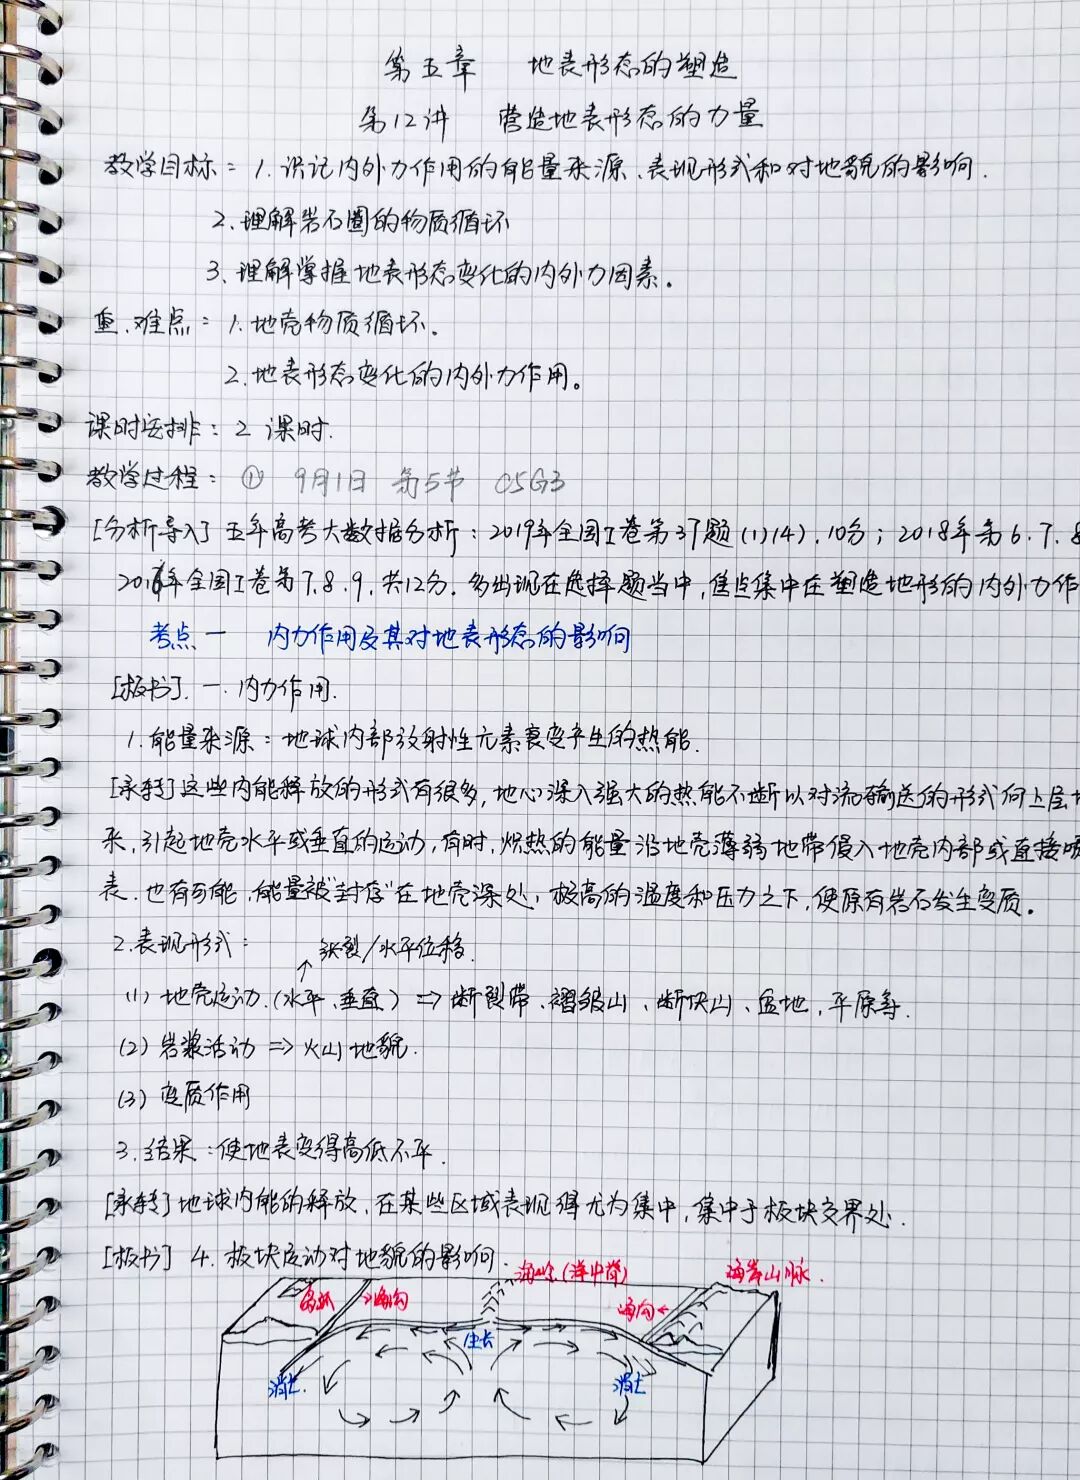 第五章 地表形态的塑造
第12讲 营造地表形态的力量
教学目标：1.识记内外力作用的能量来源、表现形式和对地貌的影响.
2.理解岩石圈的物质循环
3.理解掌握地表形态变化的内外力因素。
重.难点：1.地壳物质循环。
2.地表形态变化的内外力作用。
课时安排：2课时.
教学过程：① 9月1日 第5节 C5G3
[分析导入] 五年高考大数据分析：2019年全国I卷第37题(1)(4).10分；2018年第6.7.8
2016年全国I卷第7.8.9.共12分.多出现在选择题当中,焦点集中在塑造地形的内外力作
考点一 内力作用及其对地表形态的影响
[板书].一.内力作用.
1.能量来源：地球内部放射性元素衰变产生的热能.
[承转]这些内能释放的形式有很多,地心深入强大的热能不断以对流输送的形式向上层
来,引起地壳水平或垂直的运动,有时,炽热的能量沿地壳薄弱地带侵入地壳内部或直接喷
表.也有可能,能量被"封存"在地壳深处,极高的温度和压力之下,使原有岩石发生变质。
2.表现形式： 张裂/水平位移.
(1)地壳运动.(水平、垂直)⇒断裂带、褶皱山、断块山、盆地,平原等.
(2)岩浆活动⇒火山地貌.
(3)变质作用
3.结果：使地表变得高低不平.
[承转]地球内能的释放,在某些区域表现得尤为集中,集中于板块交界处.
[板书] 4.板块运动对地貌的影响.
海岭(洋中脊) 海岸山脉.
岛弧 →海沟 海沟←
生长
消亡. 消亡